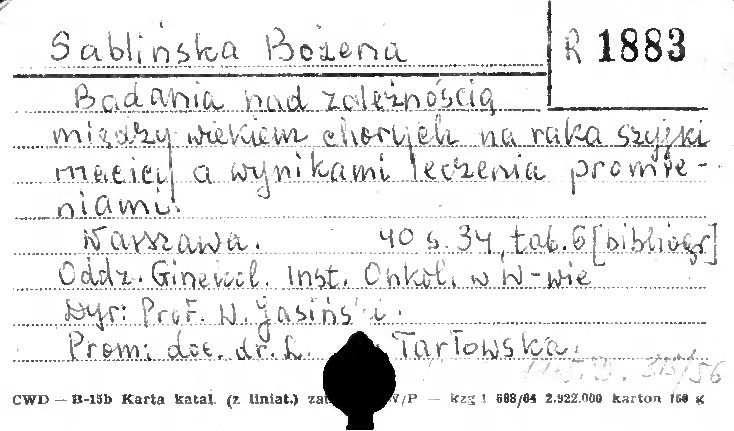 Sablińska Bożena
R 1883
Badania nad zależnością
między wiekiem chorych na raka szyjki
macicy a wynikami leczenia promie-
niami.
Warszawa. 40 s. 34, tab. 6 [bibliogr]
Oddz. Ginekol. Inst. Onkol. w W-wie
Dyr: Prof. W. Jasiński.
Prom: doc. dr. L. Tarłowska.
CWD — B-15b Karta katal. (z liniat.) W/P — kzg 1 608/64 2.922.000 karton 160 g